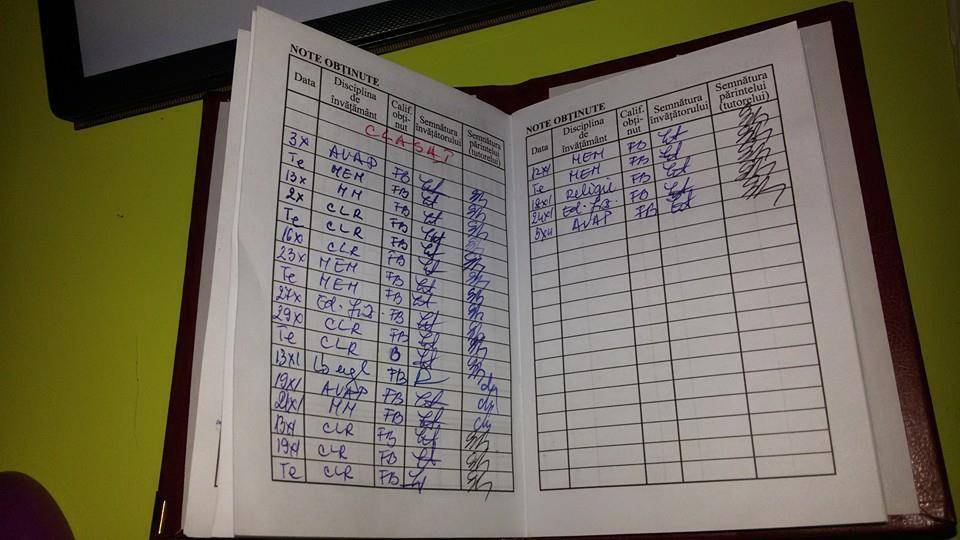 NOTE OBȚINUTE
Data Disciplina de învățământ Calif. obți-nut Semnătura învățătorului Semnătura părintelui (tutorelui)
CLASA I
3X AVAP FB
Te MEM FB
13X MM FB
2X CLR FB
Te CLR FB
16X CLR FB
23X MEM FB
Te MEM FB
27X Ed. fiz. FB
29X CLR FB
Te CLR B
13XI FB
19XI AVAP FB
21XI MM FB
13XI CLR FB
19XI CLR FB
Te CLR FB
NOTE OBȚINUTE
Data Disciplina de învățământ Calif. obți-nut Semnătura învățătorului Semnătura părintelui (tutorelui)
12XI MEM FB
Te MEM FB
18XI Religie FB
24XI Ed. fiz. FB
5XII AVAP FB